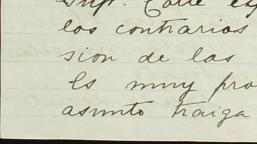 Sup. Corte es
los contrarios
sion de las
Es muy pro
asunto traiga